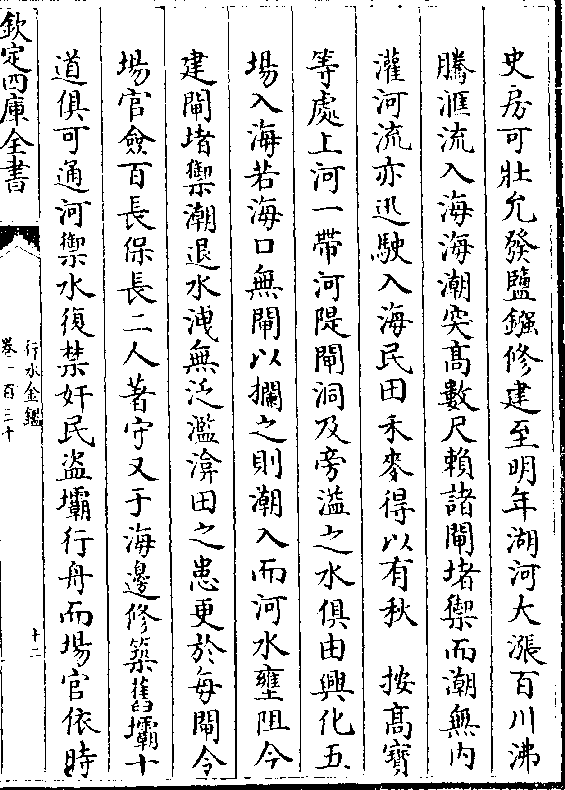 史房可壯允發鹽鏹修建至明年湖河大漲百川沸
騰滙流入海海潮突高數尺賴諸閘堵禦而潮無内
灌河流亦迅駛入海民田禾麥得以有秋　按高寶
等處上河一帶河隄閘洞及旁溢之水俱由興化五
場入海若海口無閘以攔之則潮入而河水壅阻今
建閘堵禦潮退水洩無泛濫渰田之患更於每閘令
塲官僉百長保長二人著守又于海邊修築舊壩十
道俱可通河禦水復禁奸民盗壩行舟而塲官依時
欽定四庫全書
行水金鑑
卷一百三十
十二